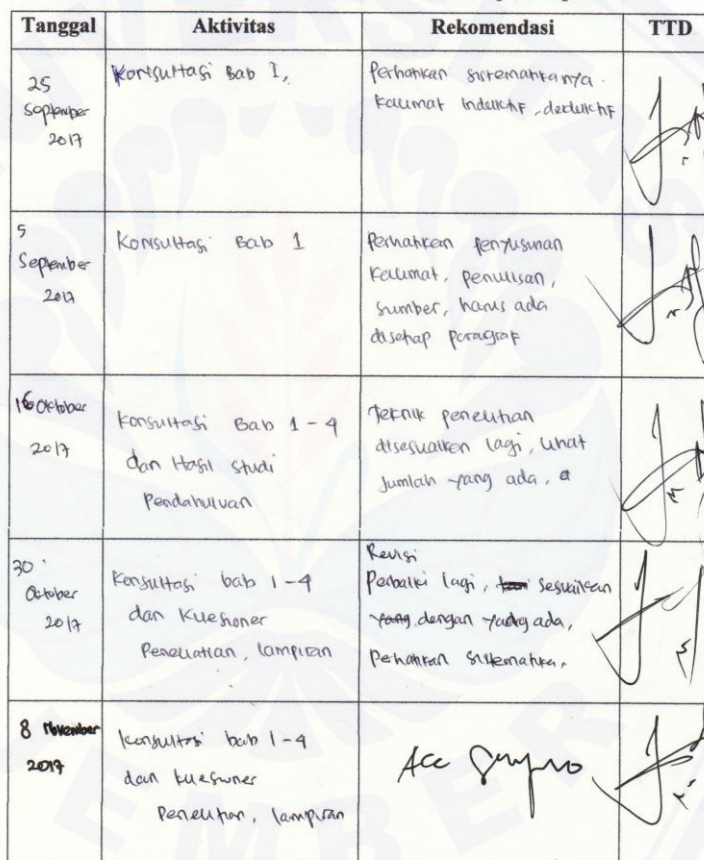 Tanggal Aktivitas Rekomendasi TTD
25 September 2017
Konsultasi Bab I,
Perhatikan sistematikanya.
Kalimat induktif, deduktif
5 September 2017
Konsultasi Bab 1
Perhatikan penyusunan
kalimat, penulisan,
sumber, harus ada
disetiap paragraf
16 Oktober 2017
Konsultasi Bab 1-4
dan Hasil studi
Pendahuluan
Teknik penelitian
disesuaikan lagi, lihat
Jumlah yang ada, a
30 Oktober 2017
Konsultasi bab 1-4
dan Kuesioner
Penelitian, lampiran
Revisi
Perbaiki lagi, sesuaikan
yang dengan yang ada,
Perhatikan sistematika,
8 November 2017
konsultasi bab 1-4
dan kuesioner
Penelitian, lampiran
Acc Sempro
EMBER